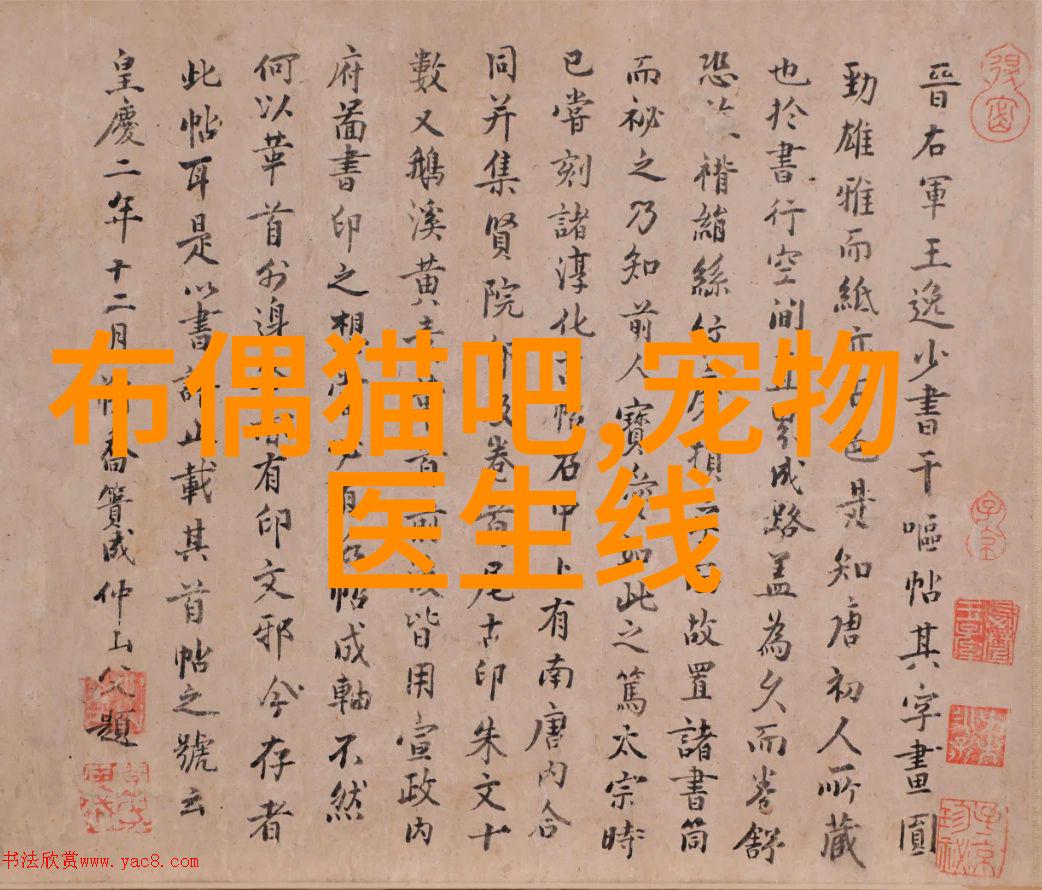 晉右軍王逸少書干嘔帖其字畫圓
勁雄雅而紙亦色是知唐初人所藏
也於書行空間成路盖為久而卷舒
恐褙絹絲損故置諸書筒
而祕之乃知前人寶愛如此之篤太宗時
已嘗刻諸淳化帖石有南唐內合
同并集賢院印及卷首尾古印朱文十
數又鵝溪黃皆用宣政內
府圖書印之想帖成軸不然
何以華首外邊有印文邪今存者
此帖耳是以書評止載其首帖之號云
皇慶二年十二月喬簣成仲山父題
布偶猫吧,宠物
医生线
书法欣赏www.yac8.com